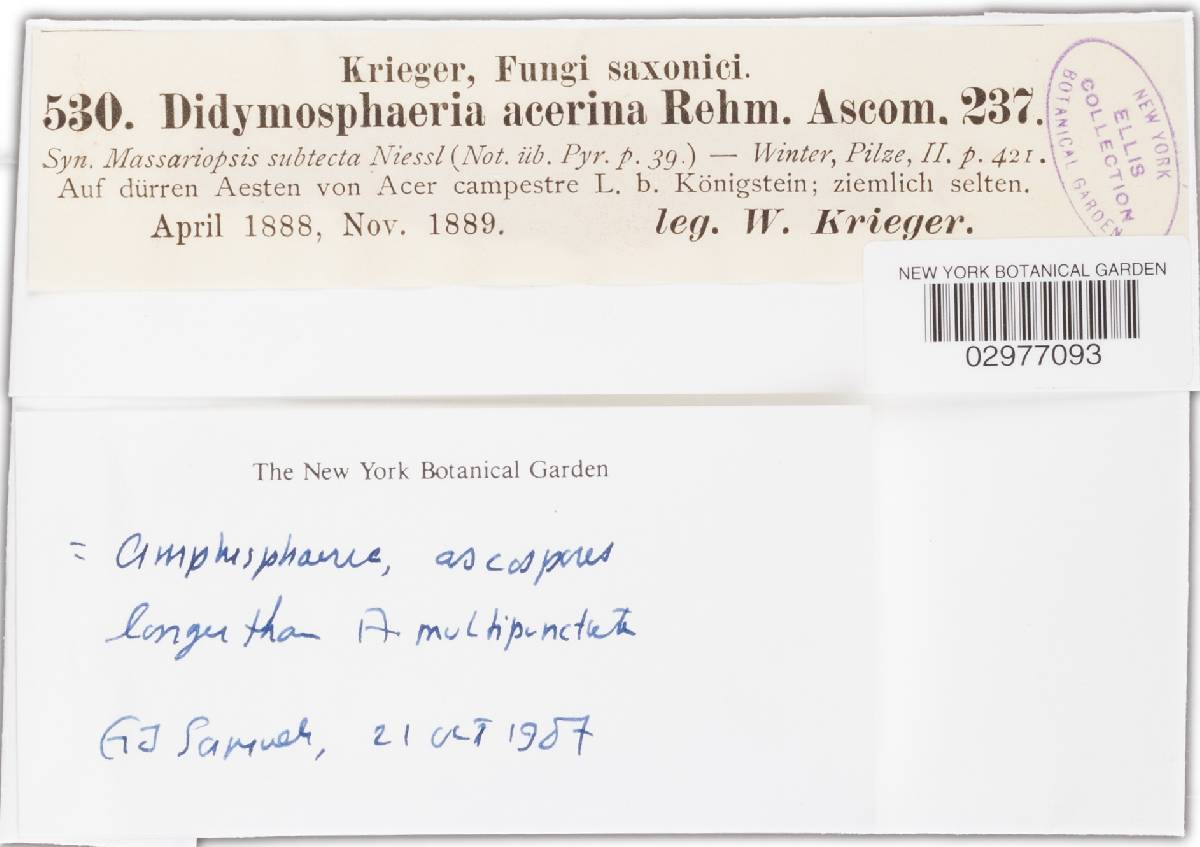 Krieger, Fungi saxonici.
530. Didymosphaeria acerina Rehm. Ascom. 237.
Syn. Massariopsis subtecta Niessl (Not. üb. Pyr. p. 39.) — Winter, Pilze, II. p. 421.
Auf dürren Aesten von Acer campestre L. b. Königstein; ziemlich selten.
April 1888, Nov. 1889. leg. W. Krieger.
NEW YORK
ELLIS
COLLECTION
BOTANICAL GARDEN
NEW YORK BOTANICAL GARDEN
02977093
The New York Botanical Garden
= Amphisphaeria, ascospores
longer than A. multipunctata
GJ Samuels, 21 OCT 1987